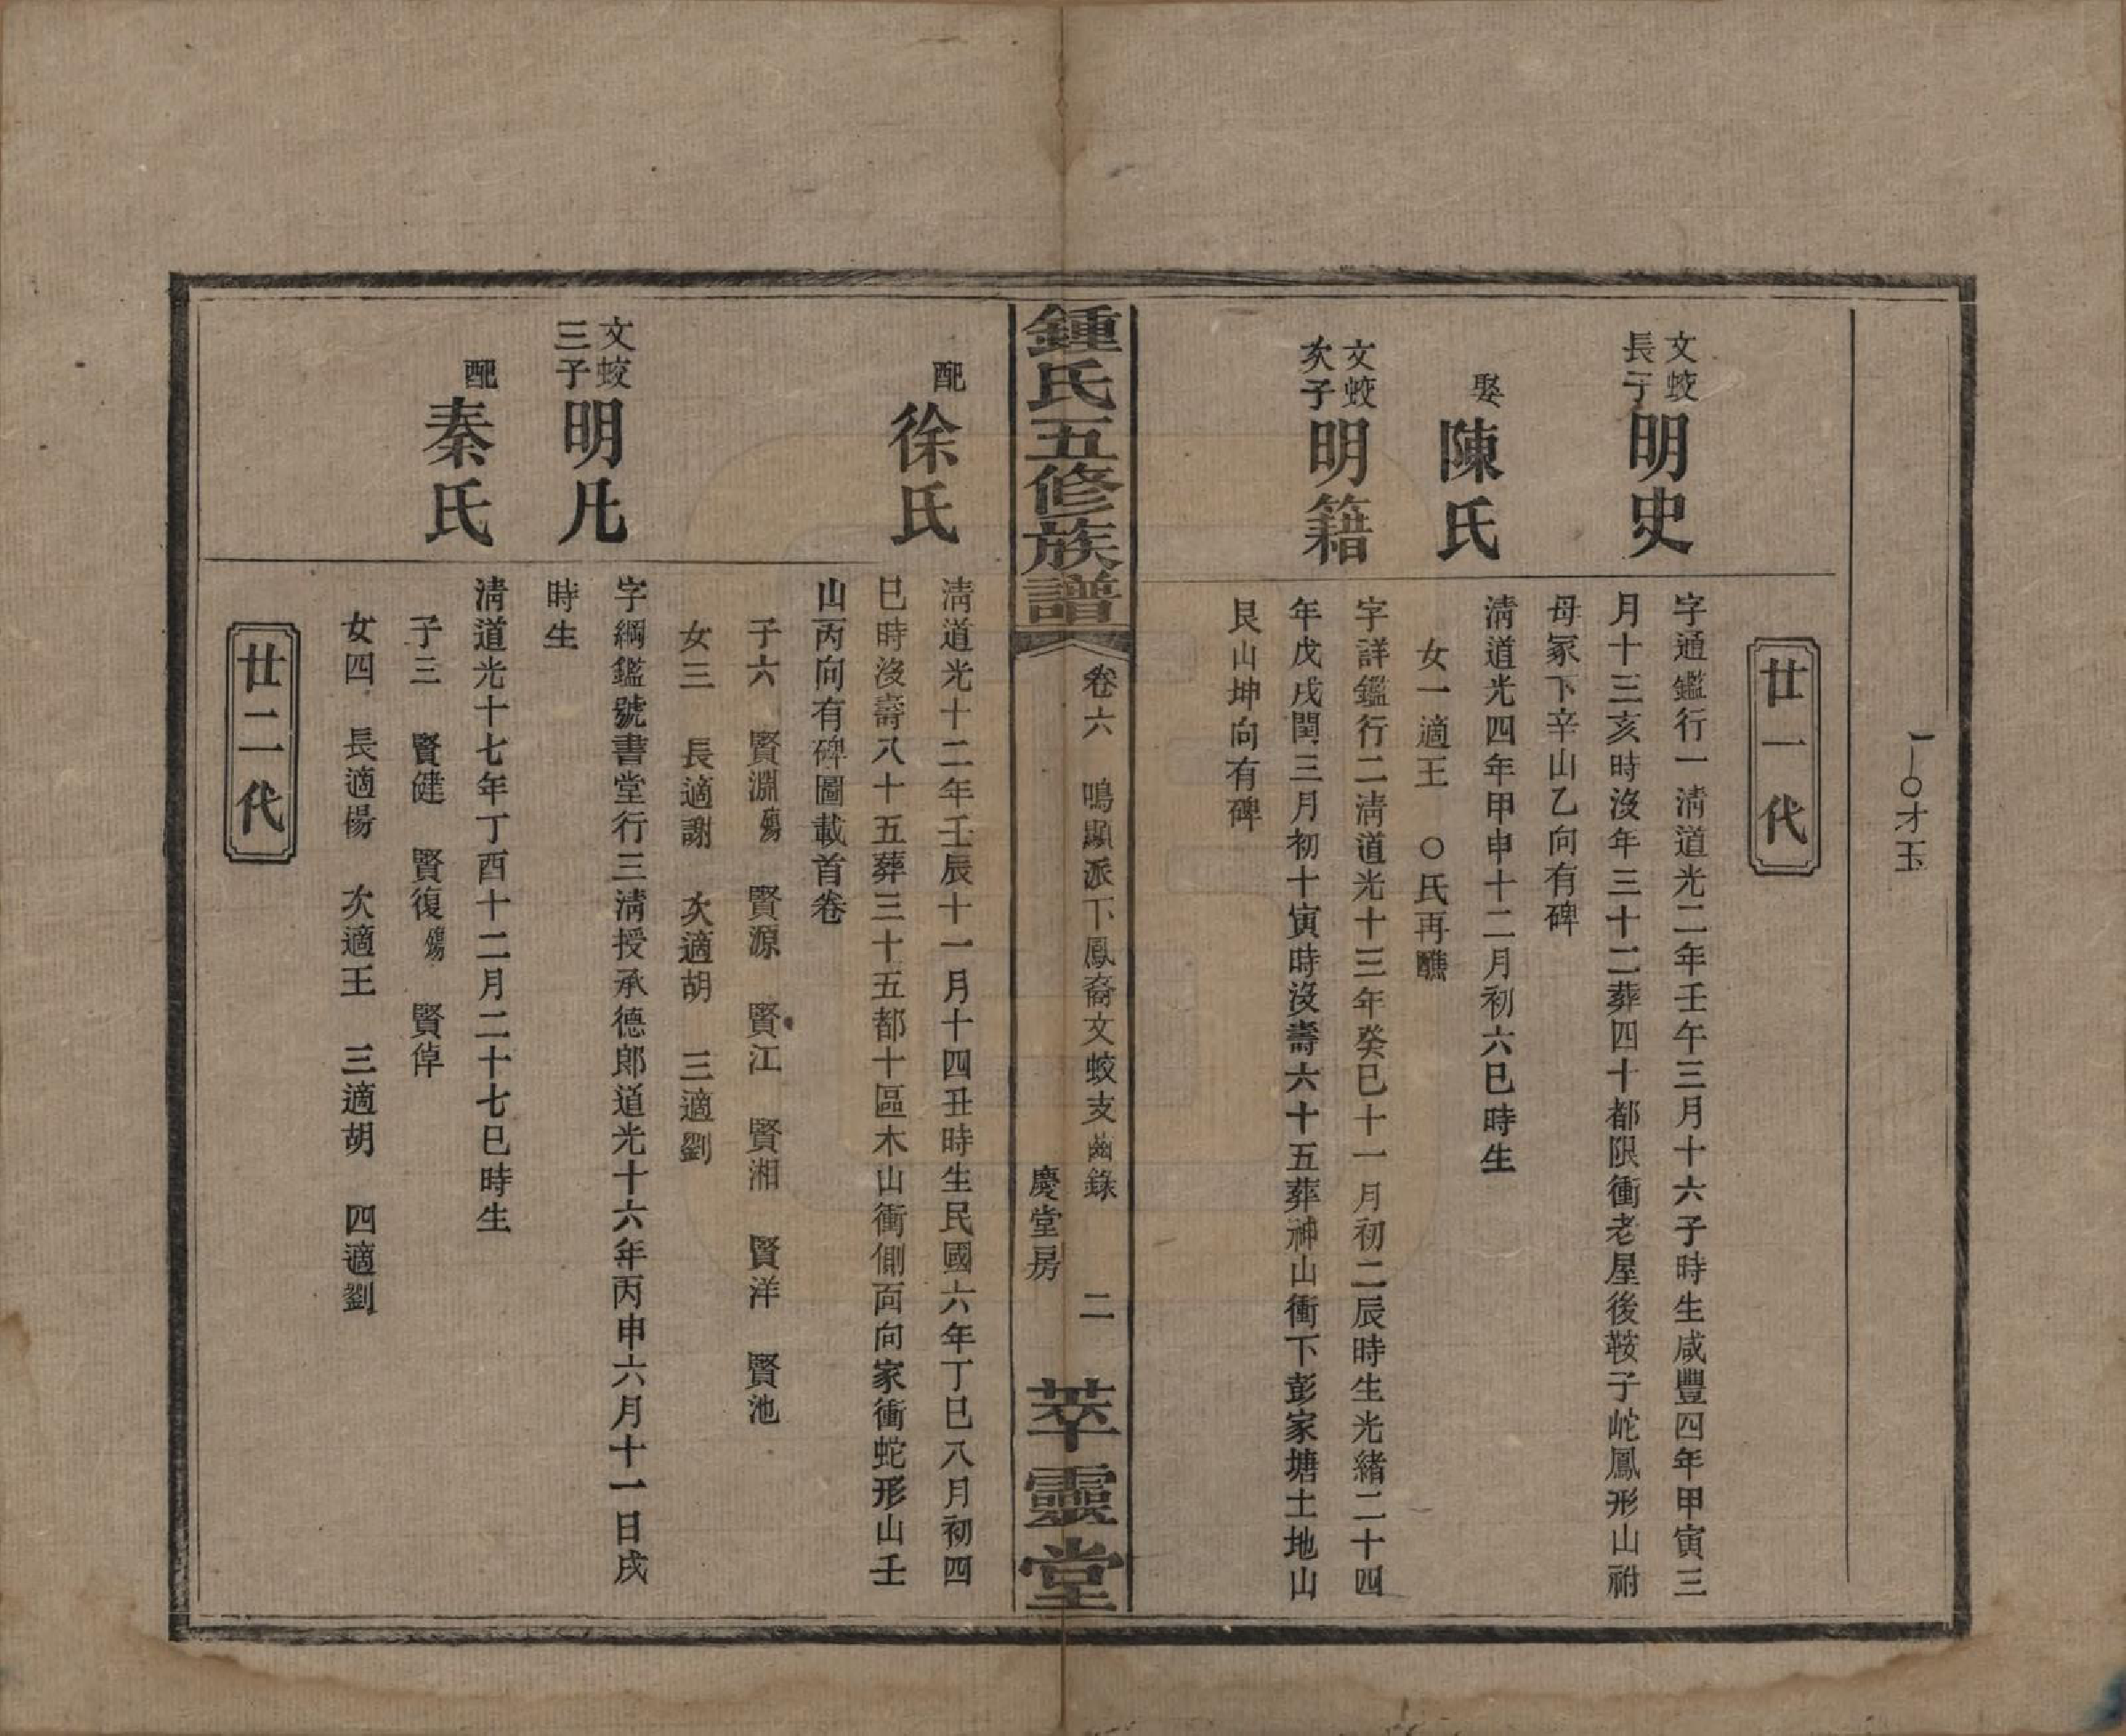 廿一代
文蛟長子明史
字通鑑行一淸道光二年壬午三月十六子時生咸豐四年甲寅三
月十三亥時沒年三十二葬四十都限衝老屋後鞍子岮鳳形山祔
母冢下辛山乙向有碑
娶陳氏
淸道光四年甲申十二月初六巳時生
女一適王　○氏再醮
文蛟次子明籍
字詳鑑行二淸道光十三年癸巳十一月初二辰時生光緖二十四
年戊戌閏三月初十寅時沒壽六十五葬神山衝下彭家塘土地山
艮山坤向有碑
鍾氏五修族譜
卷六　鳴顯派下鳳裔文蛟支齒錄　二
慶堂房
萃靈堂
配徐氏
淸道光十二年壬辰十一月十四丑時生民國六年丁巳八月初四
巳時沒壽八十五葬三十五都十區木山衝側面向家衝蛇形山壬
山丙向有碑圖載首卷
子六　賢淵殤　賢源　賢江　賢湘　賢洋　賢池
女三　長適謝　次適胡　三適劉
文蛟三子明凡
字綱鑑號書堂行三淸授承德郎道光十六年丙申六月十一日戌
時生
配秦氏
淸道光十七年丁酉十二月二十七巳時生
子三　賢健　賢復殤　賢倬
女四　長適楊　次適王　三適胡　四適劉
廿二代